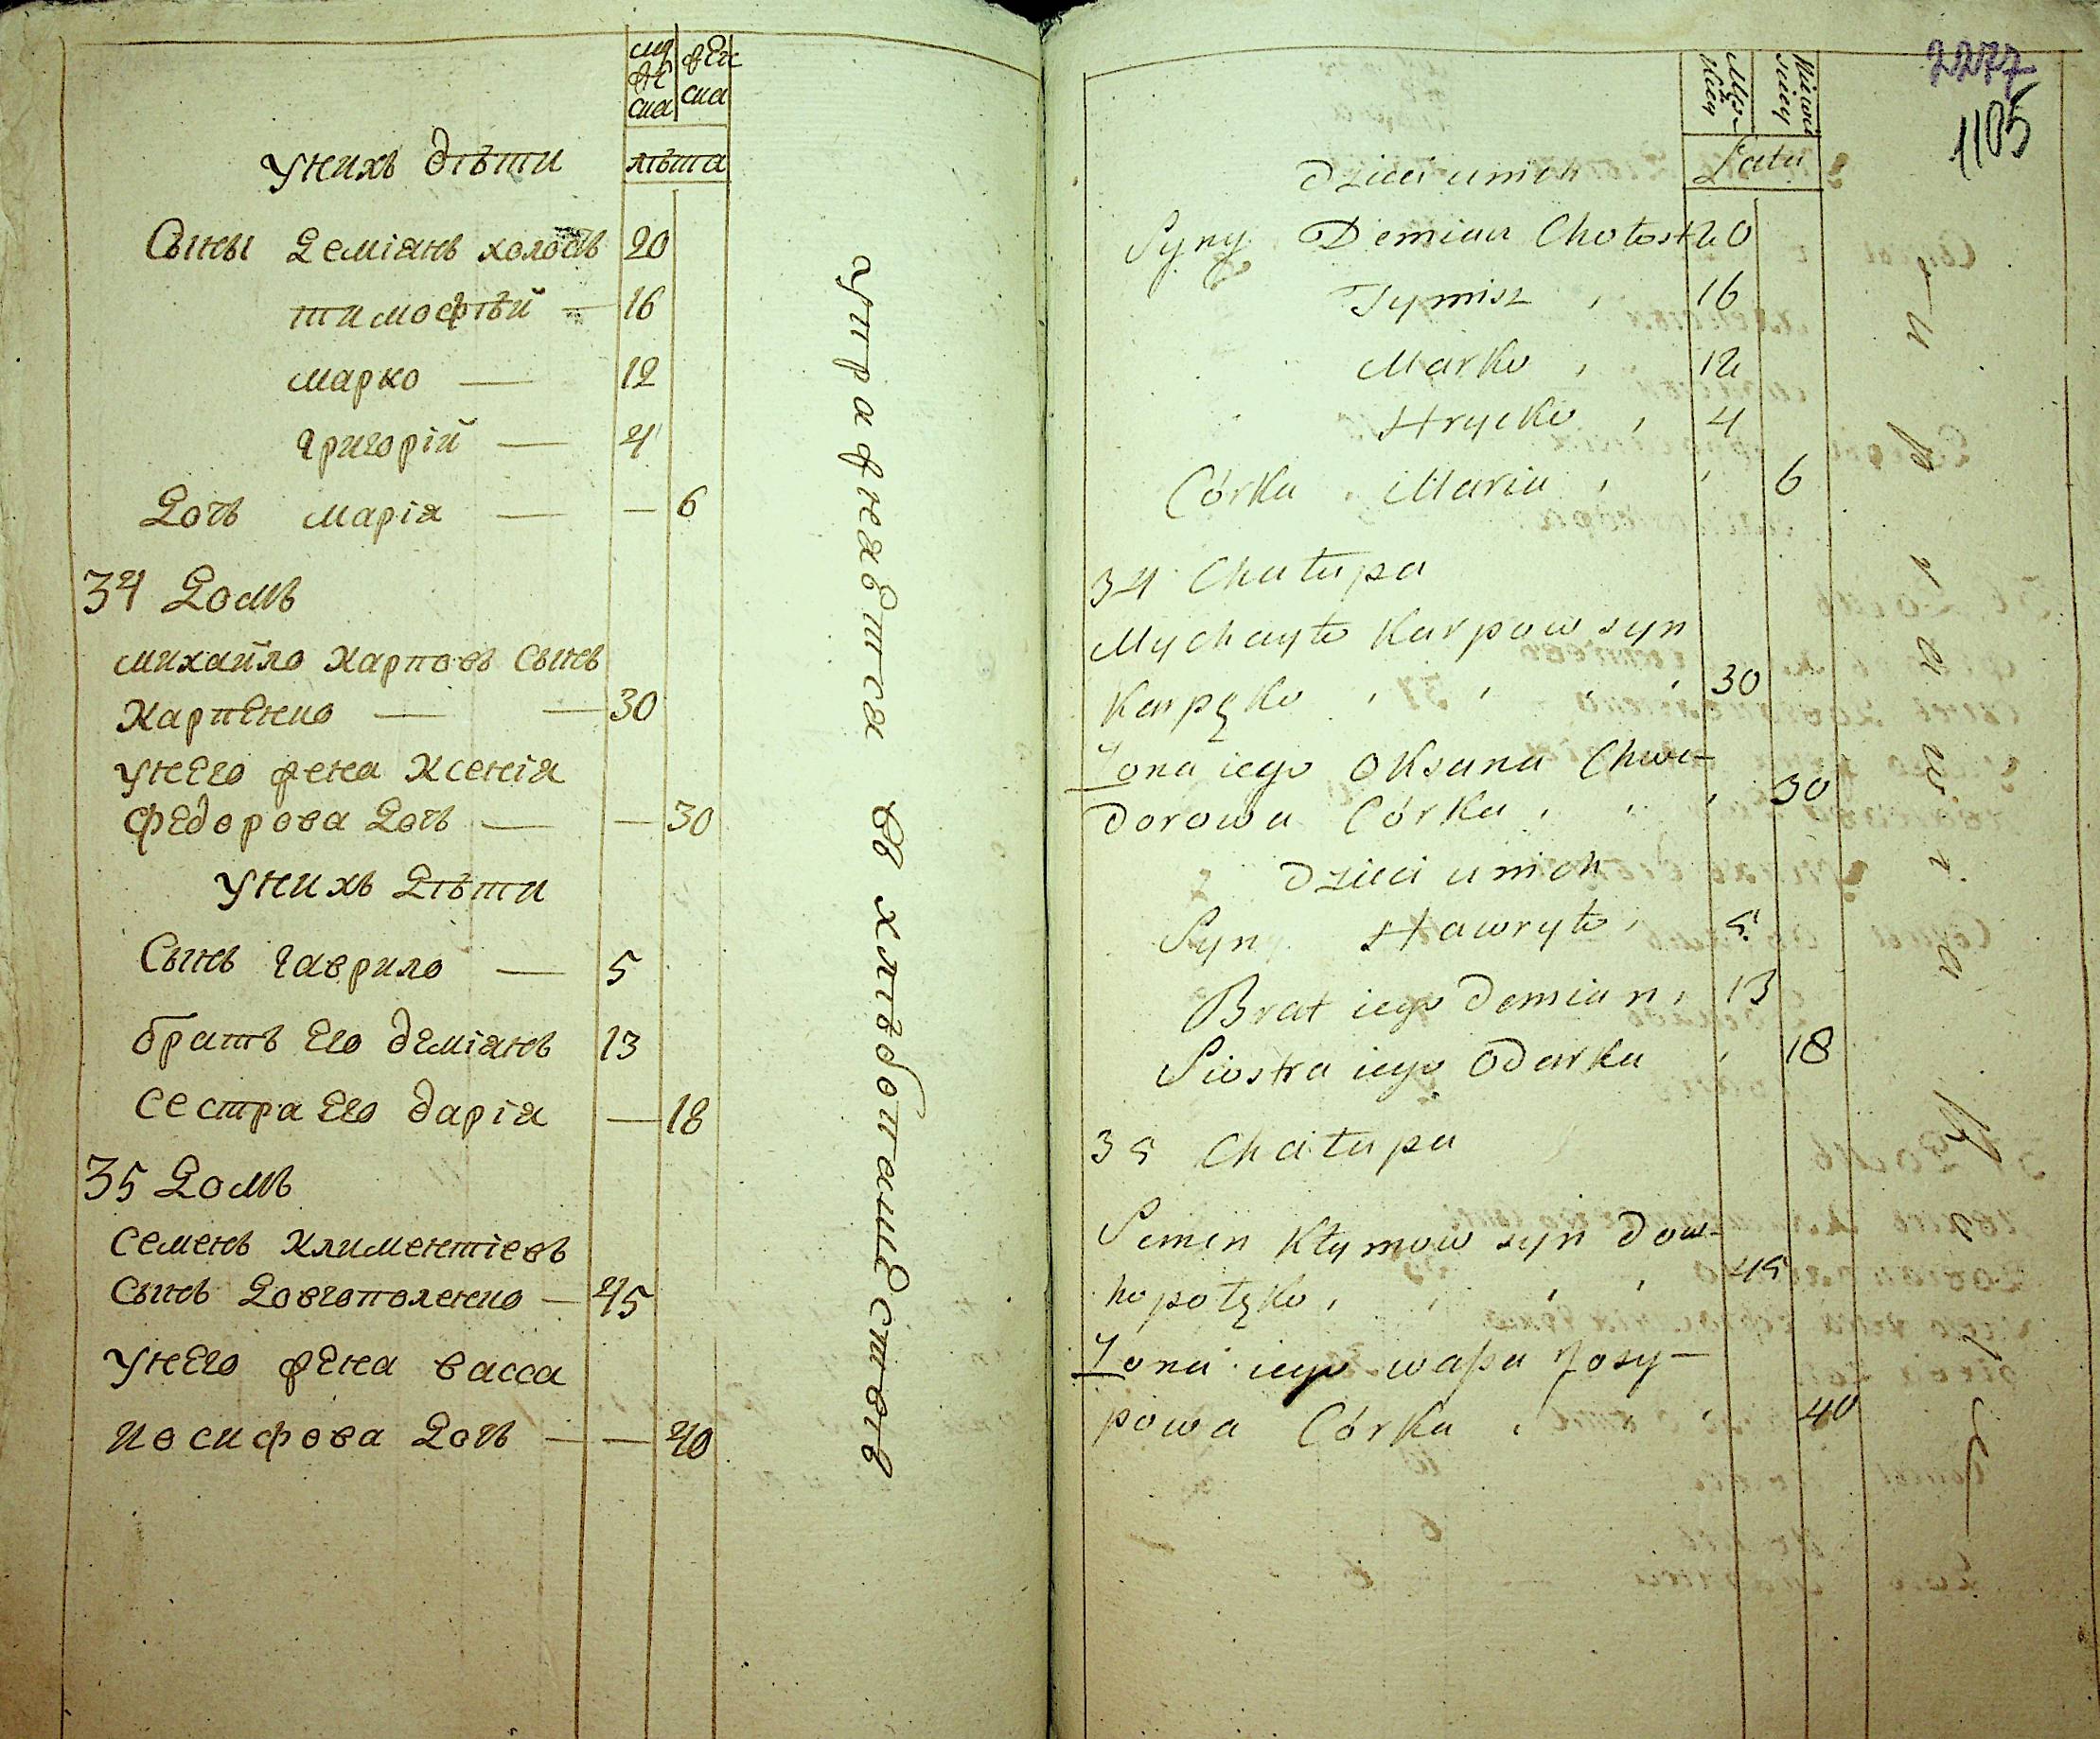 муж
ска
женска
лѣта
у нихъ дѣти
Сыны Деміянъ холостъ 20
тимофѣй — 16
марко — 12
григорій — 4
Дочь марія — — 6
34 Домъ
михайло Карповъ сынъ
Карпенко — — 30
у него жена Ксенія
федорова Дочь — — 30
у нихъ Дѣти
Сынъ гаврило — 5
братъ Его деміянъ 13
сестра Его дарія — 18
35 Домъ
семенъ Климентіевъ
сынъ Довгополенко — 45
у него жена васса
иосифова Дочь — — 40
упражняется въ хлѣбопашествѣ
2277
1105
Męskiey
Żenskiey
Lata
Dzieci u nich
Syny Demian Chołost 20
Tymisz 16
Marko 12
Hrycko 4
Córka Maria 6
34 Chałupa
Mychayło Karpow syn
Karpęko 30
Żona iego Oksana Chwe-
dorowa Córka 30
Dzieci u nich
Syn Hawryło 5
Brat iego Demian 13
Siostra iego Odarka 18
35 Chałupa
Semen Kłymow syn Dow-
hopołęko 45
Żona iego waßa Josy-
powa Córka 40